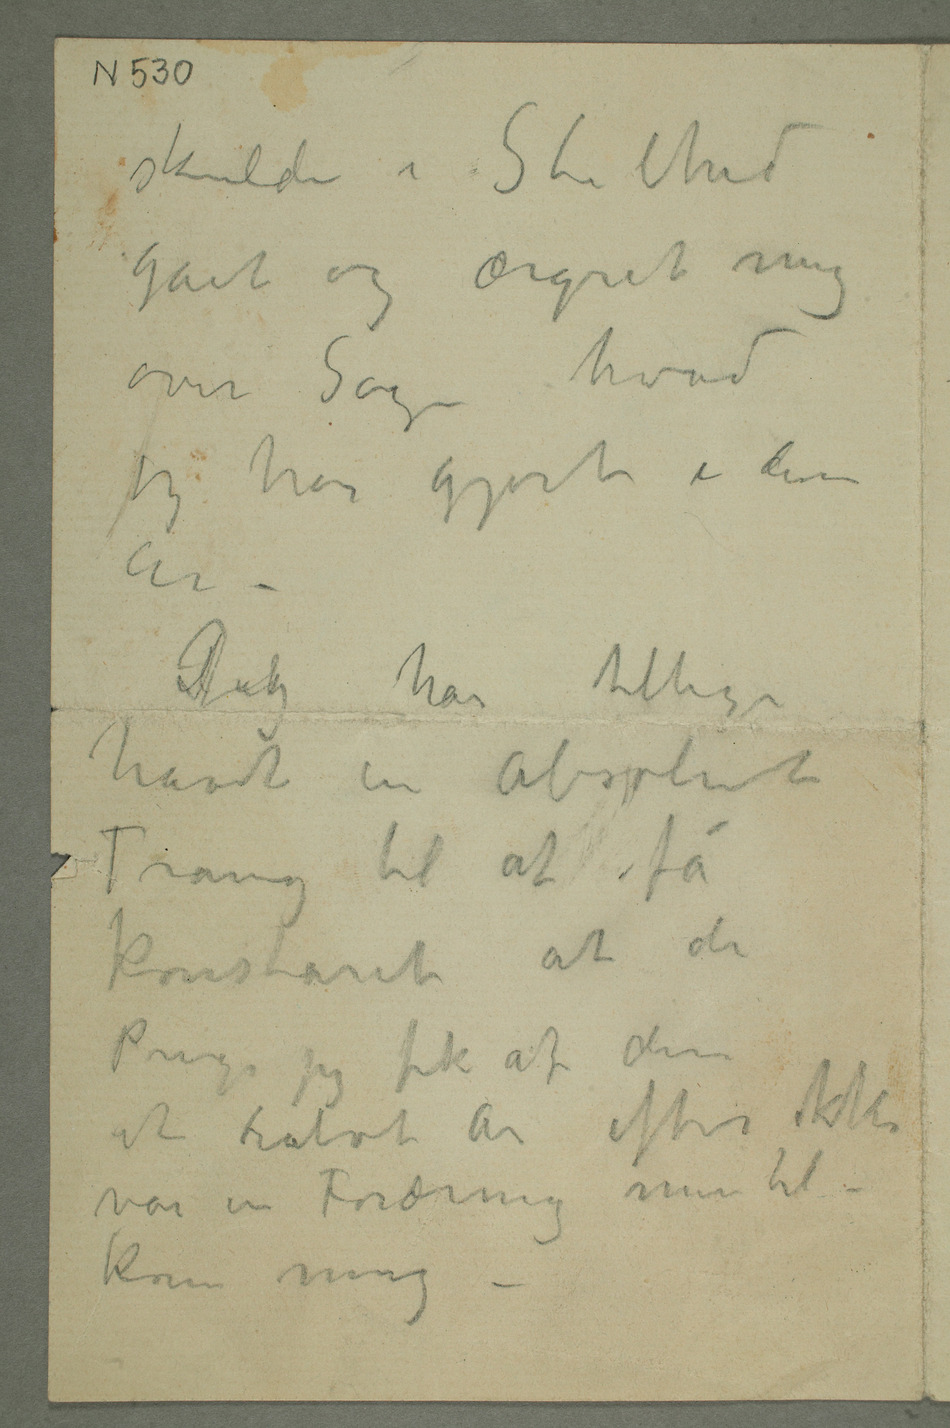 N 530
skulde i Stilhed
gået og ærgret mig
over Sagen hvad
jeg har gjort i den
År –
Jeg har tillige
havdt en absolut
Trang til at få
konstaret at de
Penge jeg fik af dem
et halvt År efter ikke
var en Foræring men til-
kom mig –